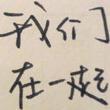 我们
在一起